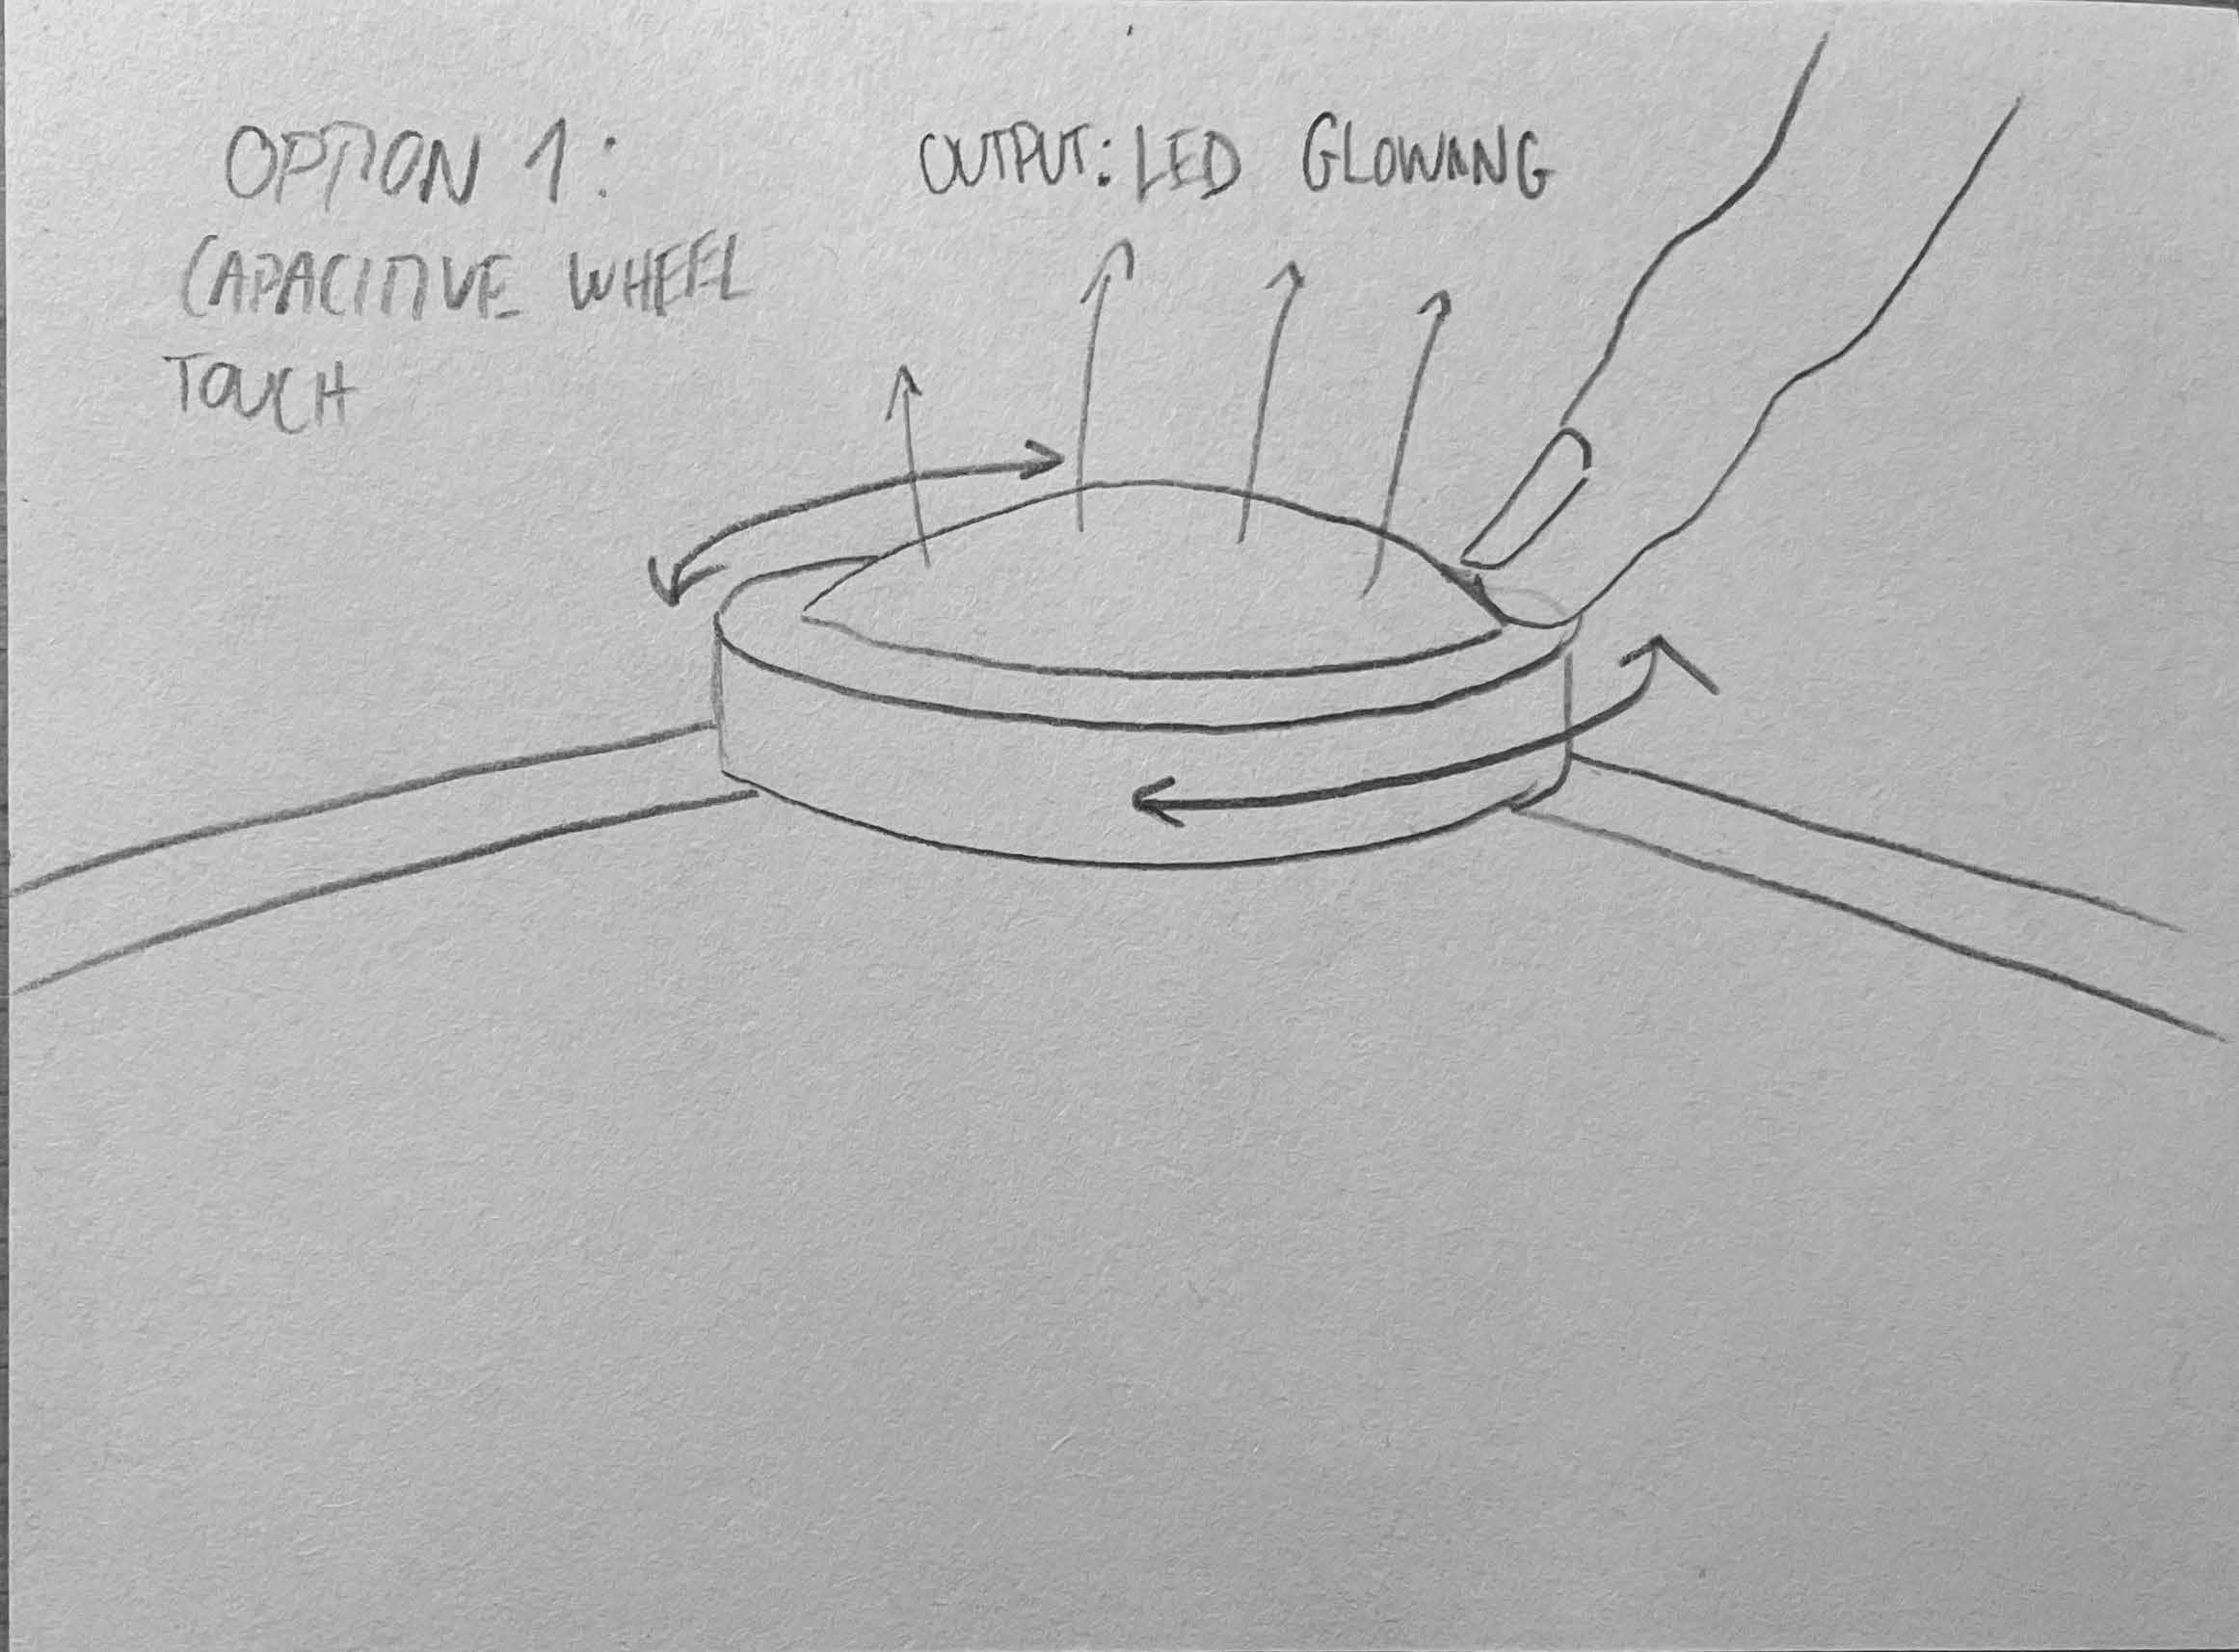 OPTION 1:
CAPACITIVE WHEEL
TOUCH
OUTPUT: LED GLOWING